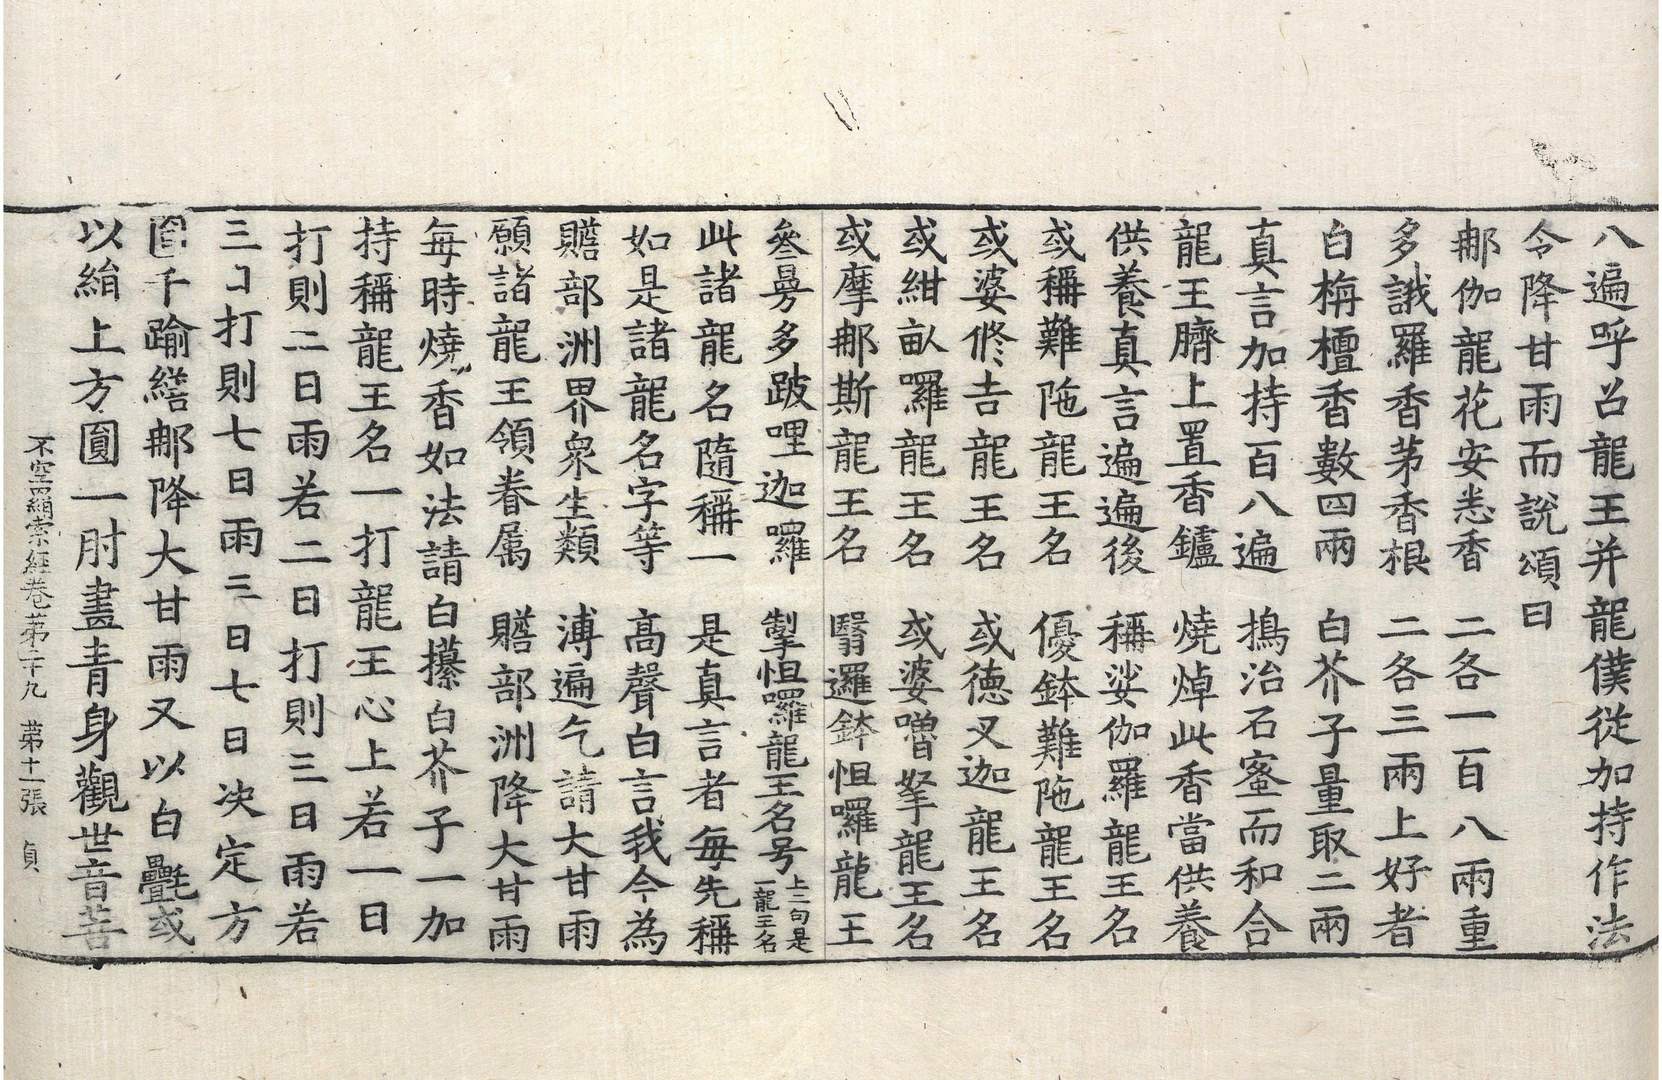 八遍呼召龍王并龍僕從加持作法
令降甘雨而說頌曰
那伽龍花安悉香 二各一百八兩重
多誐羅香茅香根 二各三兩上好者
白栴檀香數四兩 白芥子量取二兩
真言加持百八遍 擣治石蜜而和合
龍王臍上置香鑪 燒焯此香當供養
供養真言遍遍後 稱娑伽羅龍王名
或稱難陁龍王名 優鉢難陁龍王名
或婆修吉龍王名 或德叉迦龍王名
或紺畝囉龍王名 或婆嚕拏龍王名
或摩那斯龍王名 翳邏鉢怛囉龍王
叅曼多跛哩迦囉 掣怛囉龍王名号 上二句是一龍王名
此諸龍名隨稱一 是真言者每先稱
如是諸龍名字等 高聲白言我今為
贍部洲界衆生類 溥遍乞請大甘雨
願諸龍王領眷属 贍部洲降大甘雨
每時燒香如法請白攥白芥子一加
持稱龍王名一打龍王心上若一日
打則二日雨若二日打則三日雨若
三日打則七日雨三日七日决定方
圎千踰繕那降大甘雨又以白㲲或
以絹上方圓一肘畫青身觀世音菩
不空羂索經卷第二十九 第十一張 貞